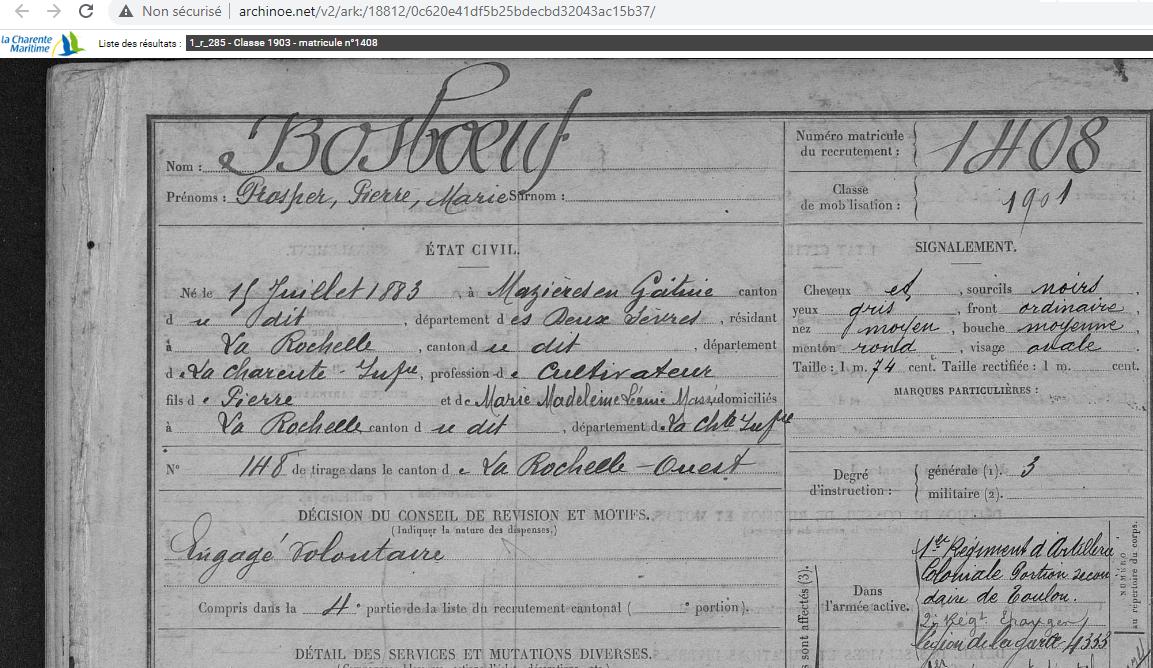 Non sécurisé | archinoe.net/v2/ark:/18812/0c620e41df5b25bdecbd32043ac15b37/
la Charente Maritime
Liste des résultats : 1_r_285 - Classe 1903 - matricule n°1408
Nom : Bosboeuf
Prénoms : Prosper, Pierre, Marie Surnom :
Numéro matricule du recrutement : 1408
Classe de mobilisation : 1901
ÉTAT CIVIL.
Né le 15 Juillet 1883, à Mazières en Gâtine canton
d u dit, département d es Deux Sèvres, résidant
à La Rochelle, canton d u dit, département
d e La Charente-Infre, profession d e Cultivateur
fils d e Pierre et de Marie Madeleine Léonie Massé domiciliés
à La Rochelle canton d u dit, département d e La Chte Infre
N° 148 de tirage dans le canton d e La Rochelle-Ouest
SIGNALEMENT.
Cheveux et, sourcils noirs
yeux gris, front ordinaire
nez moyen, bouche moyenne
menton rond, visage ovale.
Taille : 1 m. 74 cent. Taille rectifiée : 1 m. cent.
MARQUES PARTICULIÈRES :
Degré d'instruction : générale (1). 3
militaire (2).
DÉCISION DU CONSEIL DE REVISION ET MOTIFS.
(Indiquer la nature des dispenses.)
Engagé Volontaire
Compris dans la 4e partie de la liste du recrutement cantonal ( e portion).
DÉTAIL DES SERVICES ET MUTATIONS DIVERSES.
sont affectés (3).
Dans l'armée active.
1er Régiment d'Artillerie
Coloniale Portion secon
daire de Toulon.
2e Régt Etranger
Légion de la garde 4333
NUMÉRO
au répertoire du corps.